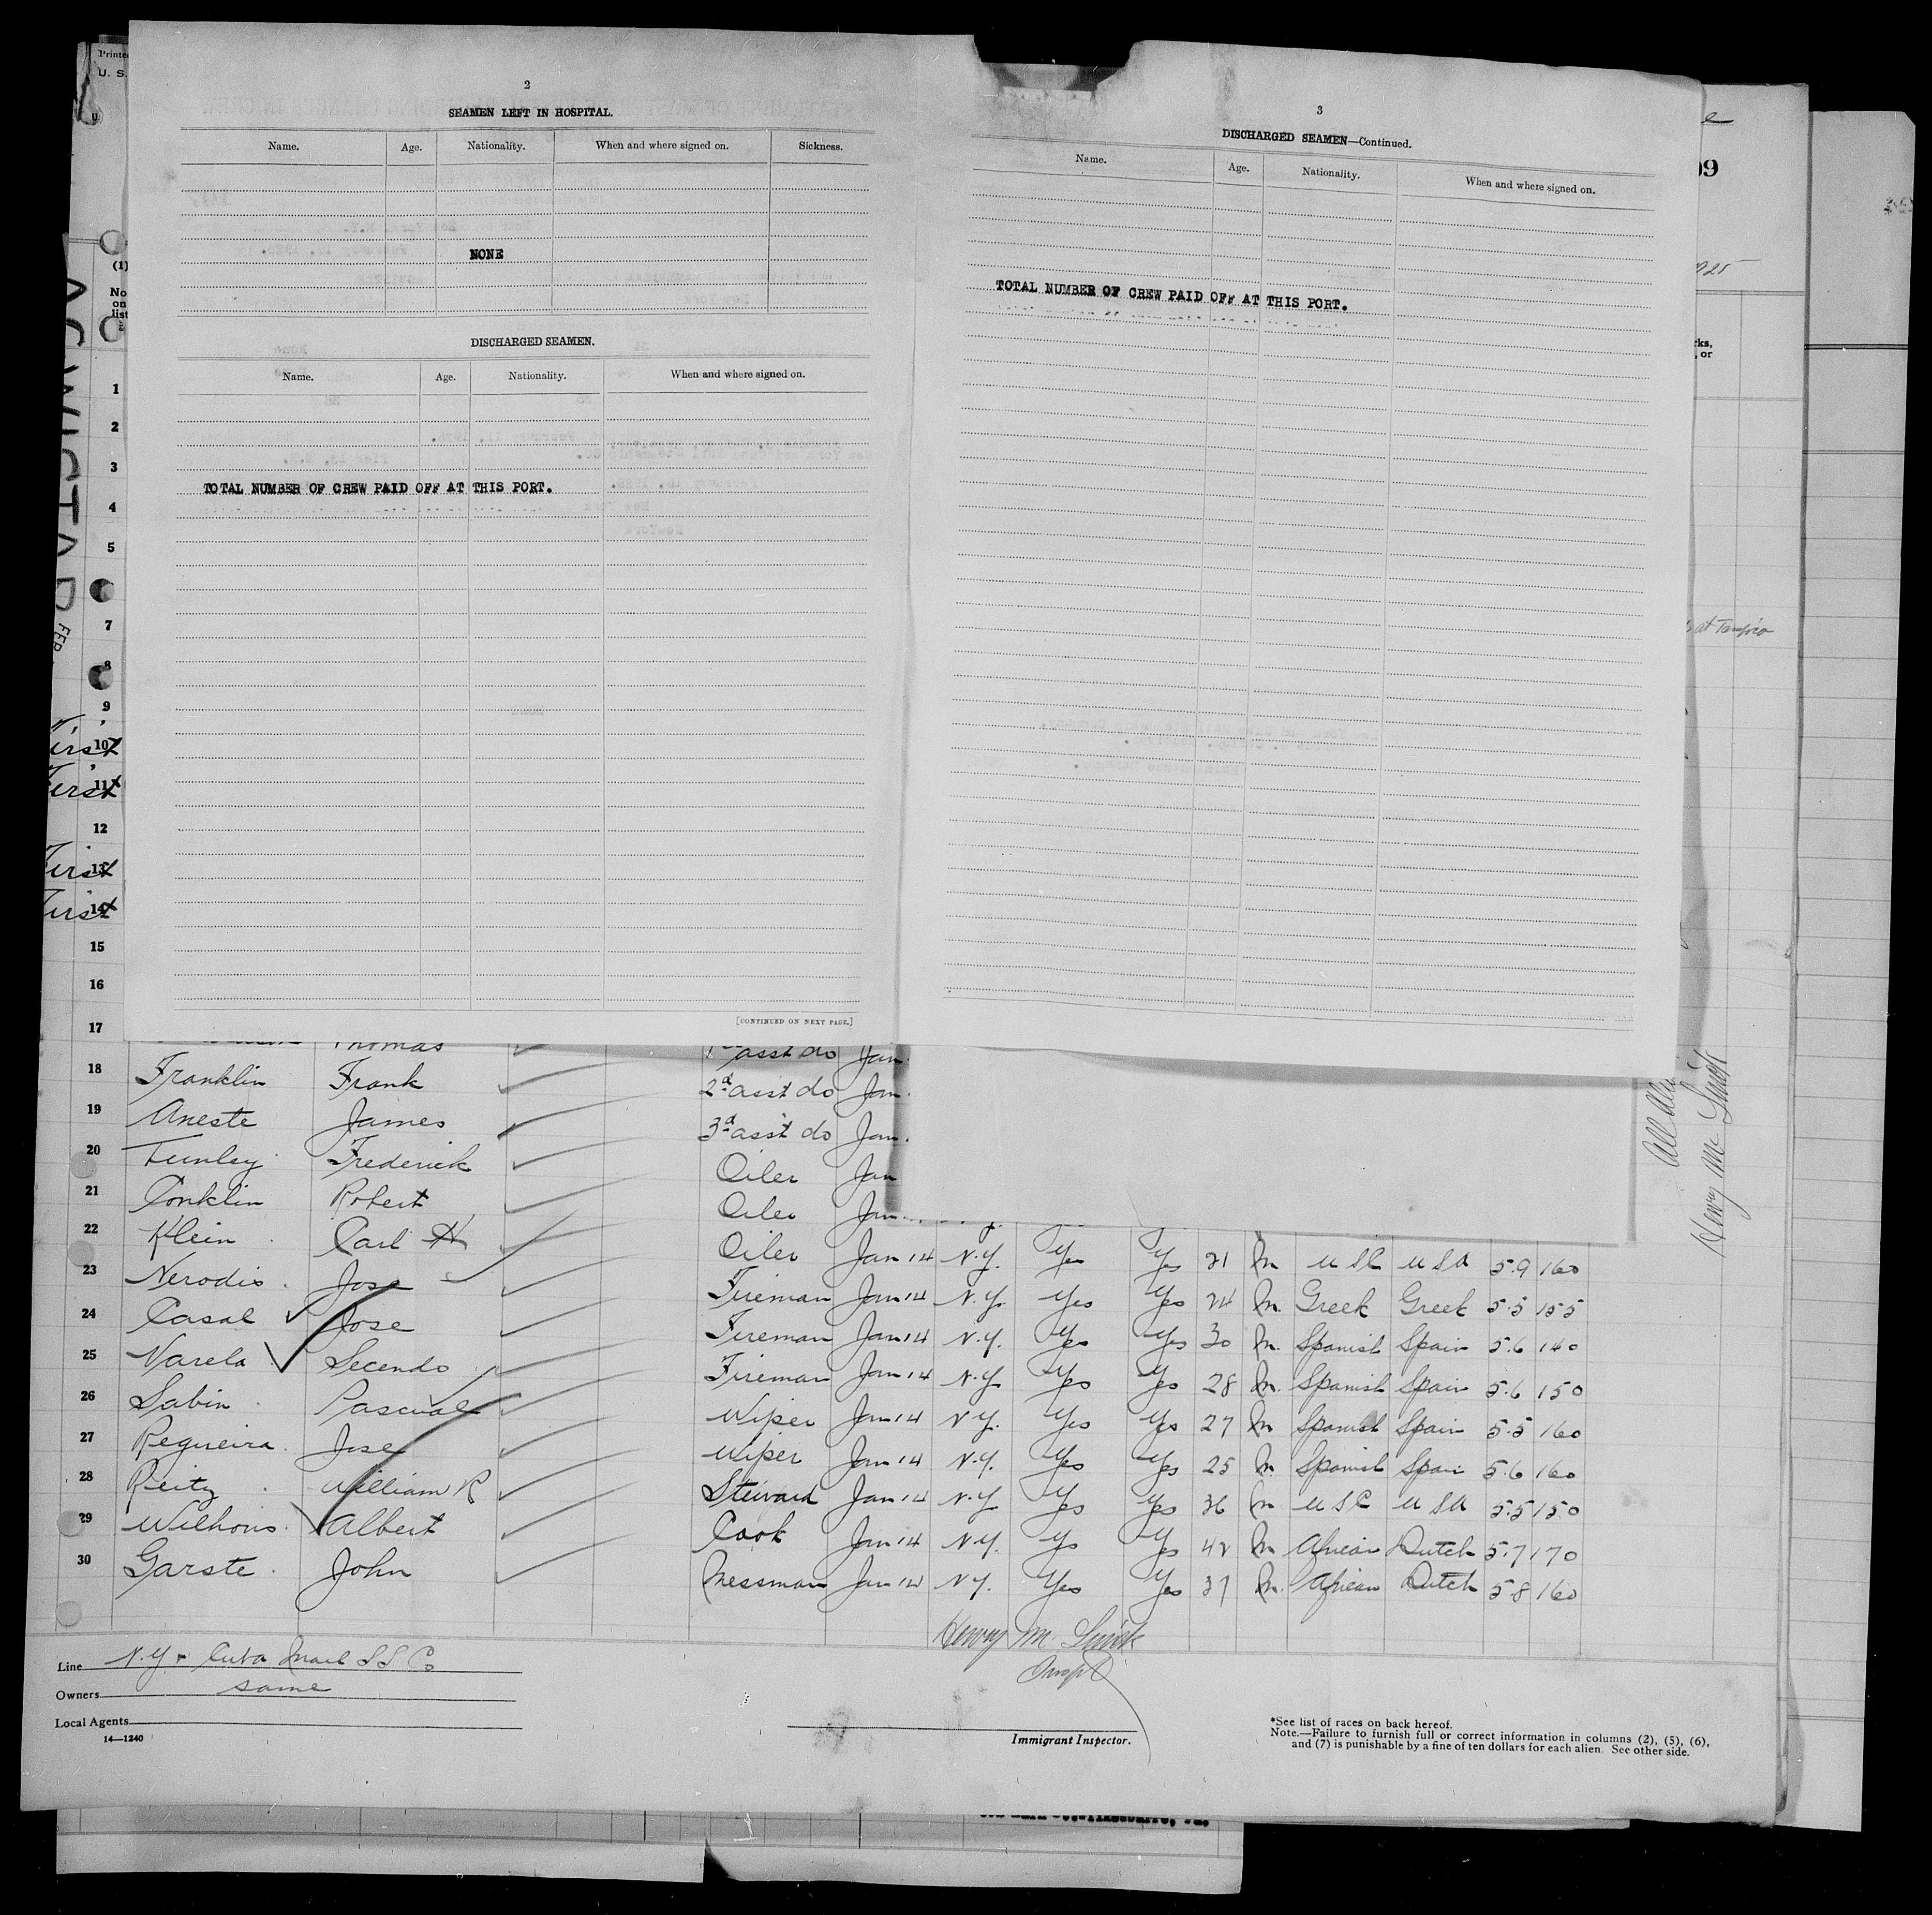 2
SEAMEN LEFT IN HOSPITAL.
Name. Age. Nationality. When and where signed on. Sickness.
NONE
DISCHARGED SEAMEN.
Name. Age. Nationality. When and where signed on.
TOTAL NUMBER OF CREW PAID OFF AT THIS PORT.
[CONTINUED ON NEXT PAGE.]
3
DISCHARGED SEAMEN—Continued.
Name. Age. Nationality. When and where signed on.
TOTAL NUMBER OF CREW PAID OFF AT THIS PORT.
U. S.
(1)
No
on
list
1
2
3
4
5
7
8
9
10
11
12
13
14
15
16
17 Thomas asst do Jan
18 Franklin Frank 2d asst do Jan
19 Aneste James 3d asst do Jan
20 Tunley Frederick Oiler Jan
21 Conklin Robert Oiler Jan
22 Klein Carl H Oiler Jan 14 N.Y. Yes Yes 21 M USC USA 5.9 160
23 Nerodis Jose Fireman Jan 14 N.Y. Yes Yes 24 M. Greek Greek 5.5 155
24 Casal Jose Fireman Jan 14 N.Y. Yes Yes 30 M. Spanish Spain 5.6 140
25 Varela Secendo Fireman Jan 14 N.Y. Yes Yes 28 M. Spanish Spain 5.6 150
26 Sabin Pascual Wiper Jan 14 N.Y. Yes Yes 27 M Spanish Spain 5.5 160
27 Regueira Jose Wiper Jan 14 N.Y. Yes Yes 25 M. Spanish Spain 5.6 160
28 Reitz William R Steward Jan 14 N.Y. Yes Yes 36 M USC USA 5.5 150
29 Wilhous Albert Cook Jan 14 N.Y. Yes Yes 42 M African Dutch 5.7 170
30 Garste John Messman Jan 14 N.Y. Yes Yes 37 M. African Dutch 5.8 160
at Tampico
Henry M.
Line N.Y & Cuba Mail SS Co
Owners same
Local Agents
14—1240
Immigrant Inspector.
*See list of races on back hereof.
Note.—Failure to furnish full or correct information in columns (2), (5), (6),
and (7) is punishable by a fine of ten dollars for each alien. See other side.